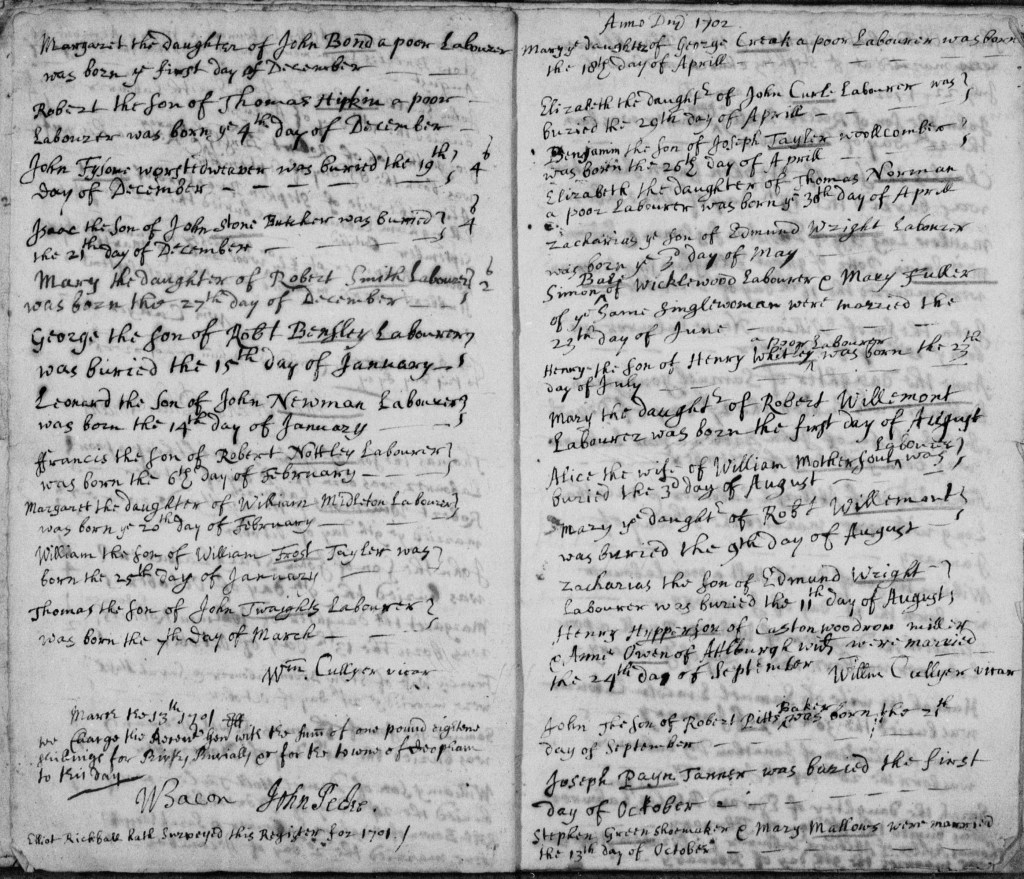 Margaret the daughter of John Bond a poor Labourer
was born ye first day of December
Robert the son of Thomas Hipkin a poor
Labourer was born ye 4th day of December
John Fysone worstedweaver was buried the 19th
day of December
Isaac the son of John Stone Butcher was buried
the 21th day of December
Mary the daughter of Robert Smith Labourer
was born the 27th day of December
George the son of Robt Bensley Labourer
was buried the 15th day of January
Leonard the son of John Newman Labourer
was born the 14th day of January
ffrancis the son of Robert Nottley Labourer
was born the 6th day of February
Margaret the daughter of William Midleton Labourer
was born ye 20th day of February
William the son of William Frost Tayler was
born the 25th day of January
Thomas the son of John Twaights Labourer
was born the 7th day of March
Wm. Cullyer vicar
March the 13th 1701
we Charge the with the sum of one pound eightene
shillings for Births Burialls &c for the towne of deopham
to this day
WBacon John
Elliot Rickball hath Surveyed this Register for 1701
Anno Dni 1702
Mary ye daughter of George Creak a poor Labourer was born
the 18th day of Aprill
Elizabeth the daughtr of John Curle Labourer was
buried the 29th day of Aprill
Benjamin the son of Joseph Tayler woollcomber
was born the 26th day of Aprill
Elizabeth the daughter of Thomas Norman
a poor Labourer was born ye 30th day of Aprill
Zacharias ye son of Edmund Wright Labourer
was born ye 3d day of May
Simon Bale of Wicklewood Labourer & Mary Fuller
of ye same singlewoman were married the
29th day of June
Henry the son of Henry Whitley poor Labourer was born the 23th
day of July
Mary the daughtr of Robert Willemont
Labourer was born the first day of August
Alice the wife of William Mothersoul Labourer was
buried the 3d day of August
Mary ye daughtr of Robt Willemont
was buried the 9th day of August
Zacharias the son of Edmund Wright
Labourer was buried the 11th day of August
Henry Hypperson of Caston woodrow miller
& Anne Owen of Attlburgh wid were married
the 24th day of September Willm Cullyer vicar
John the son of Robert Pitts Baker was born the 21th
day of September
Joseph Payn Tanner was buried the first
day of October
Stephen Green shoemaker & Mary Mallows were married
the 13th day of October